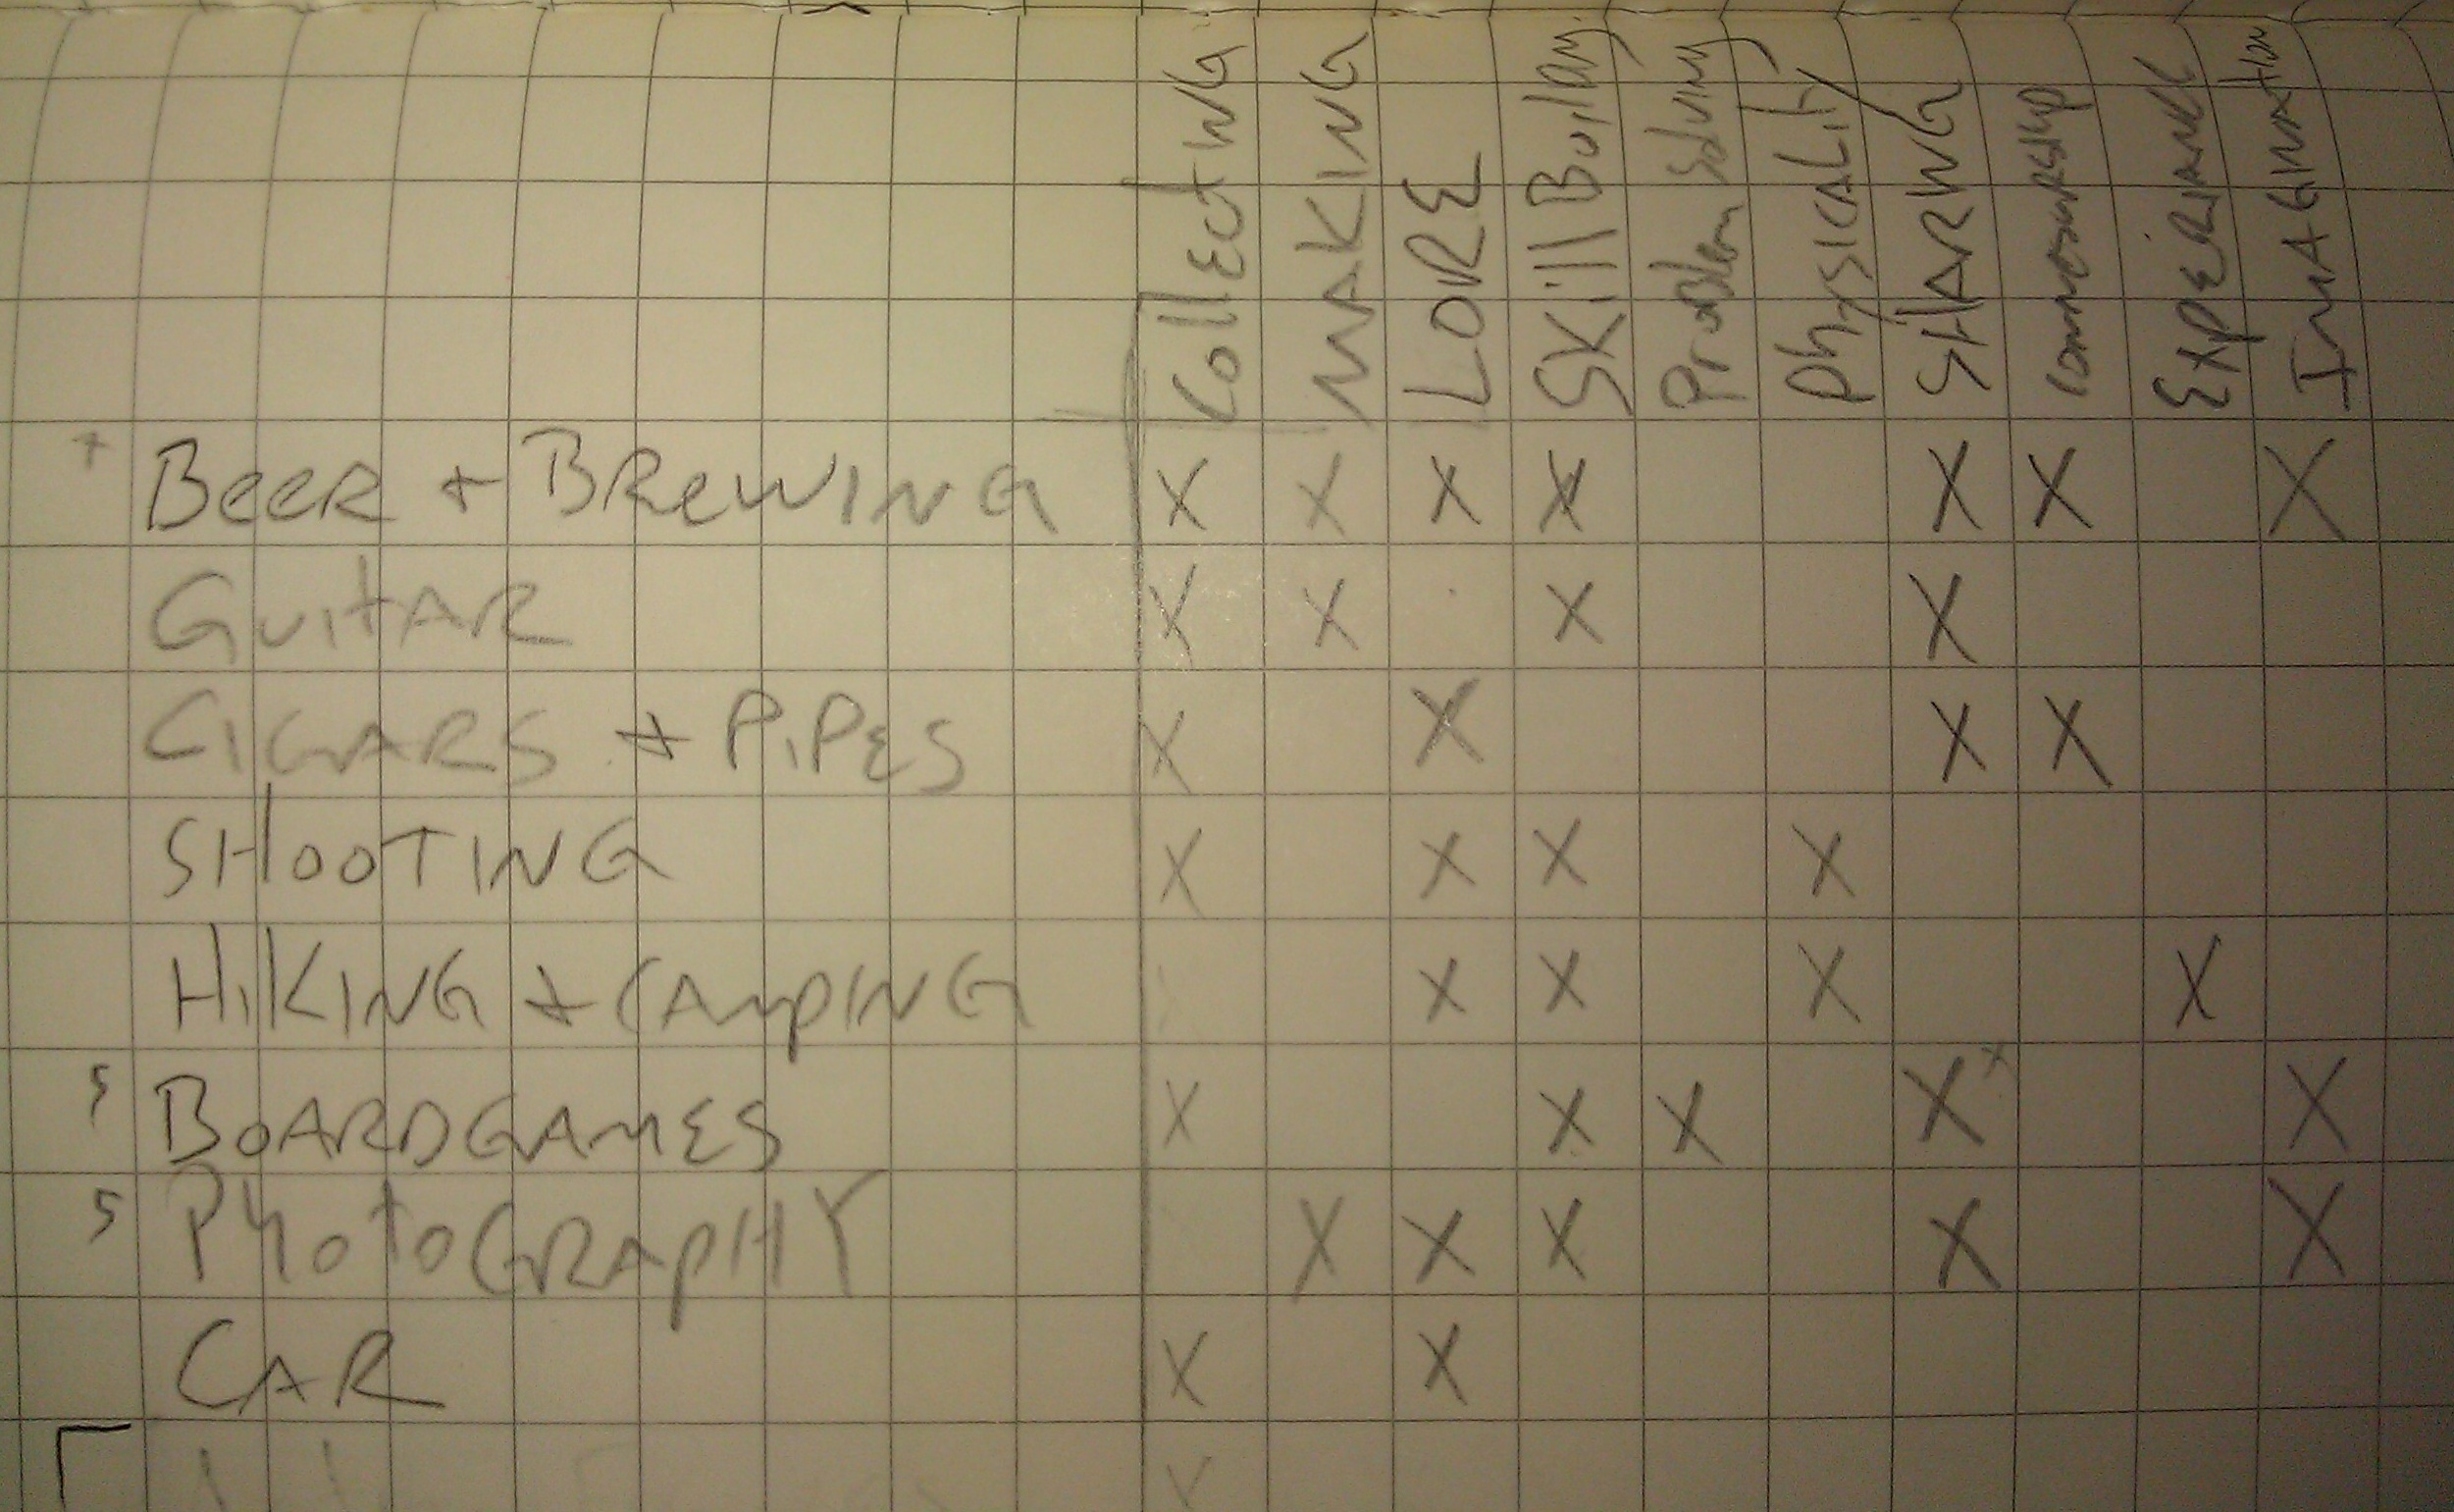 CollectING
MAKING
LORE
SKill Building
Problem Solving
PhysICALity
SHARING
EXPERIANCE
IMAGINATION
+ BeeR + BRewING X X X X X X X
GuitAR X X X X
CIGARS + PIPES X X X X
SHOOTING X X X X
HIKING + CAmpING X X X X
BOARDGAMES X X X X+ X
5 PHotoGRApHY X X X X X
CAR X X
X